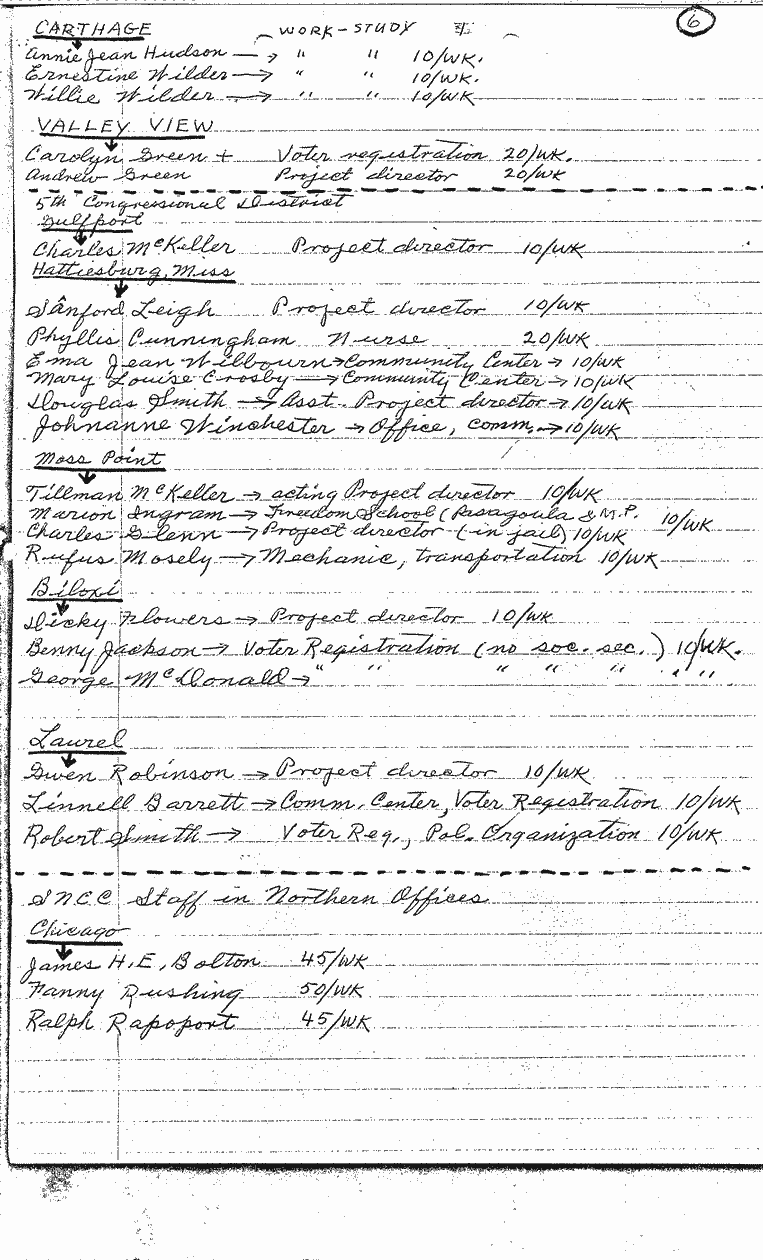 6
CARTHAGE WORK-STUDY
Annie Jean Hudson → " " 10/WK.
Ernestine Wilder → " " 10/WK.
Willie Wilder → " " 10/WK
VALLEY VIEW
Carolyn Green + Voter registration 20/WK.
Andrew Green Project director 20/WK
5th Congressional District
Gulfport
Charles McKeller Project director 10/WK
Hattiesburg, Miss
Sanford Leigh Project director 10/WK
Phyllis Cunningham Nurse 20/WK
Ema Jean Wilbourn → Community Center → 10/WK
Mary Louise Crosby → Community Center → 10/WK
Douglas Smith → Asst. Project director → 10/WK
Johnanne Winchester → Office, Comm. → 10/WK
Moss Point
Tillman McKeller → acting Project director 10/WK
Marion Ingram → Freedom School (Pasagoula & M.P. 10/WK
Charles Glenn → Project director (in jail) 10/WK
Rufus Mosely → Mechanic, transportation 10/WK
Biloxi
Dicky Flowers → Project director 10/WK
Benny Jackson → Voter Registration (no soc. sec.) 10/WK.
George McDonald → " " " " " " "
Laurel
Gwen Robinson → Project director 10/WK
Linnell Barrett → Comm. Center, Voter Registration 10/WK
Robert Smith → Voter Reg., Pol. Organization 10/WK
SNCC Staff in Northern Offices
Chicago
James H.E. Bolton 45/WK
Fanny Rushing 50/WK
Ralph Rapoport 45/WK